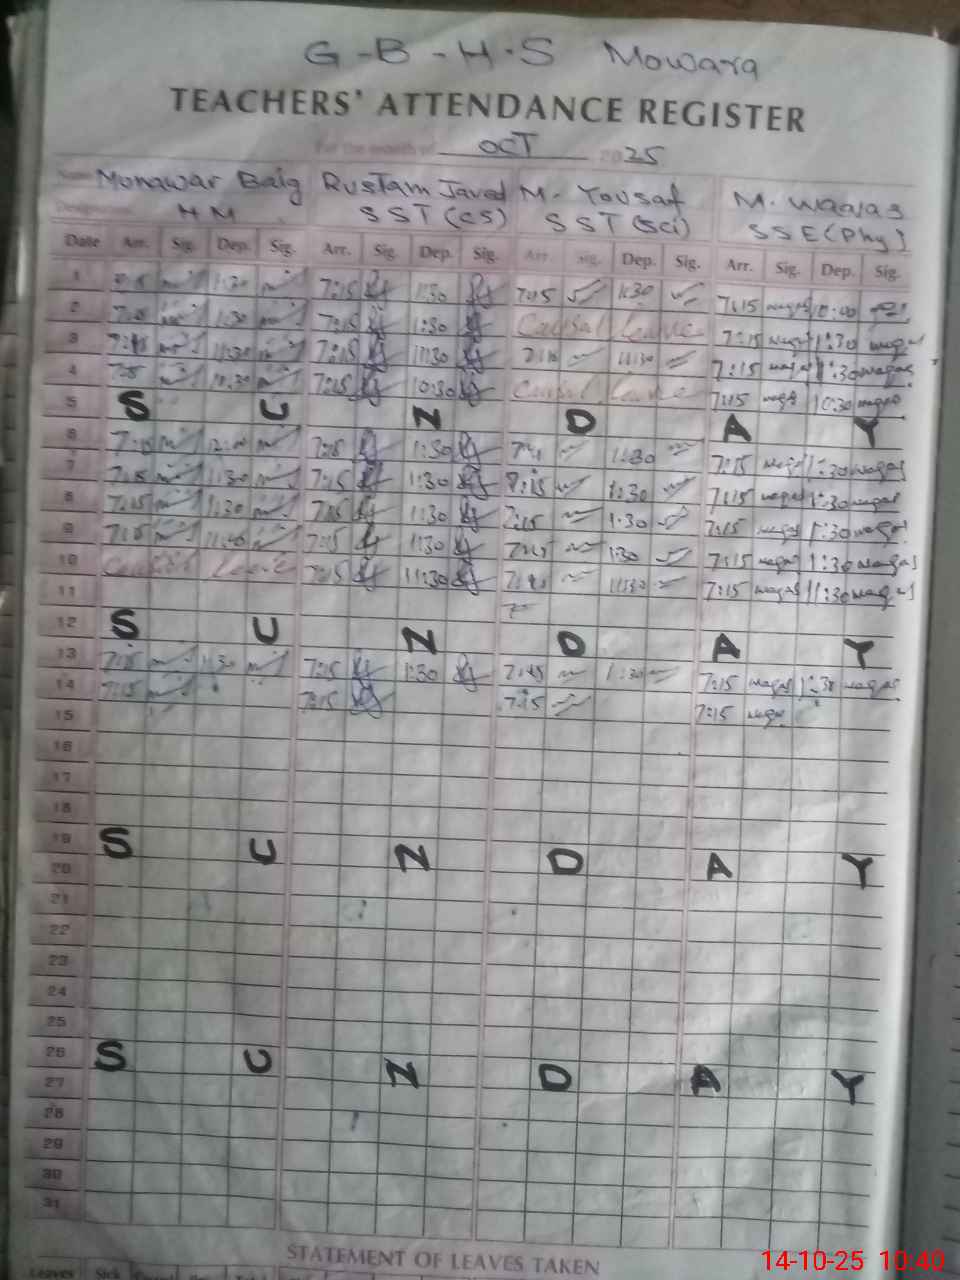 G-B-H-S Mowara
TEACHERS' ATTENDANCE REGISTER
For the month of OCT 2025
Name Monawar Baig Rustam Javed M. Yousaf M. Waqas
HM SST(CS) SST(Sci) SSE(Phy)
Date Arr. Sig. Dep. Sig. Arr. Sig. Dep. Sig. Arr. Sig. Dep. Sig. Arr. Sig. Dep. Sig.
1 7:15 1:30 7:15 1:30 7:15 1:30 7:15 waqas
2 7:15 1:30 7:15 1:30 Causal leave 7:15 waqas 1:30 waqas
3 11:30 7:15 11:30 11:30 7:15 waqas 11:30 waqas
4 10:30 7:15 10:30 Causal leave 7:15 waqas 10:30 waqas
5 S U N D A Y
6 7:15 12:00 7:15 1:30 1:30 7:15 waqas 1:30 waqas
7 7:15 1:30 7:15 1:30 7:15 1:30 7:15 waqas 1:30 waqas
8 7:15 1:30 7:15 1:30 7:15 1:30 7:15 waqas 1:30 waqas
9 7:15 11:40 7:15 1:30 1:30 7:15 waqas 1:30 waqas
10 Causal Leave 7:15 11:30 11:30 7:15 waqas 11:30 waqas
11
12 S U N D A Y
13 7:15 1:30 7:15 1:30 7:45 1:30 7:15 waqas 1:30 waqas
14 7:15 7:15 7:15 7:15 waqas
15
16
17
18
19 S U N D A Y
20
21
22
23
24
25
26 S U N D A Y
27
28
29
30
31
STATEMENT OF LEAVES TAKEN
Leaves Sick
14-10-25 10:40